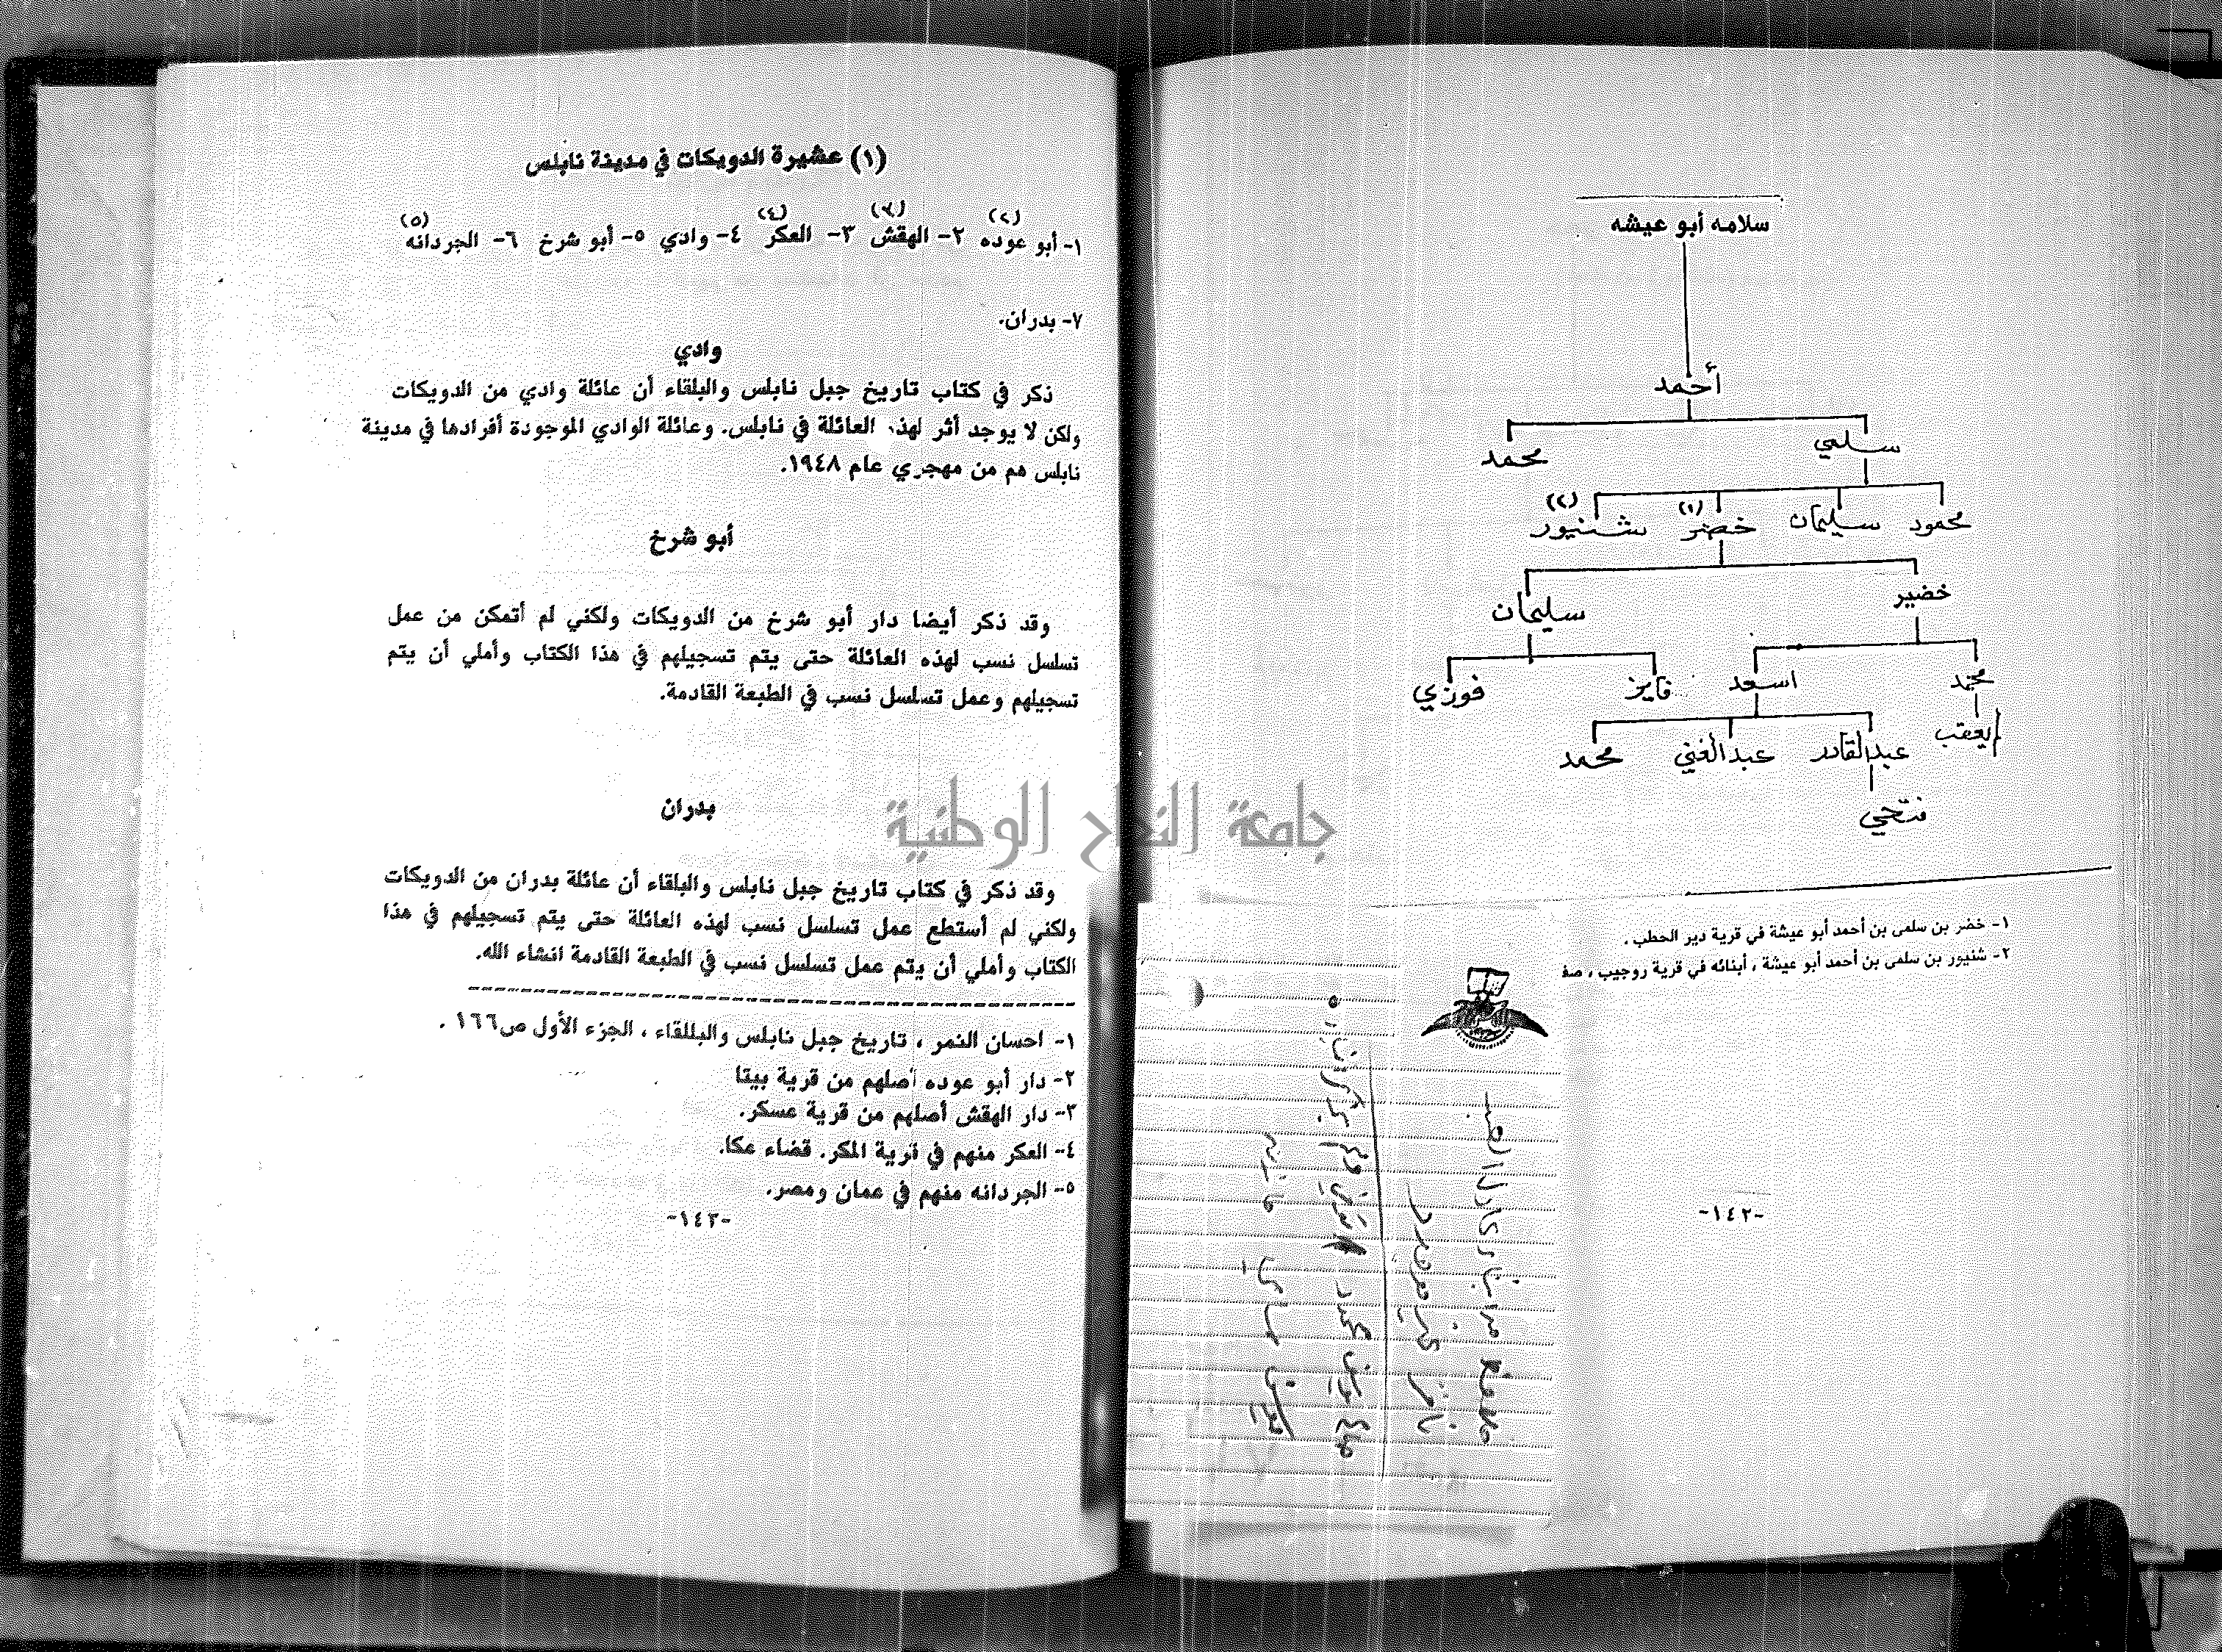 سلامه أبو عيشه
أحمد
سلمي محمد
محمود سليمان خضر (١) شنيور (٢)
خضير سليمان
محمد اسعد فايز فوزي
يعقب عبدالقادر عبدالغني محمد
فتحي
١- خضر بن سلمى بن أحمد أبو عيشة في قرية دير الحطب .
٢- شنيور بن سلمى بن أحمد أبو عيشة ، أبنائه في قرية روجيب ، صف
-١٤٢-
(١) عشيرة الدويكات في مدينة نابلس
١- أبو عوده (٢) ٢- الهقش (٣) ٣- العكر (٤) ٤- وادي ٥- أبو شرخ ٦- الجردانه (٥)
٧- بدران.
وادي
ذكر في كتاب تاريخ جبل نابلس والبلقاء أن عائلة وادي من الدويكات
ولكن لا يوجد أثر لهذه العائلة في نابلس. وعائلة الوادي الموجودة أفرادها في مدينة
نابلس هم من مهجري عام ١٩٤٨.
أبو شرخ
وقد ذكر أيضا دار أبو شرخ من الدويكات ولكني لم أتمكن من عمل
تسلسل نسب لهذه العائلة حتى يتم تسجيلهم في هذا الكتاب وأملي أن يتم
تسجيلهم وعمل تسلسل نسب في الطبعة القادمة.
بدران
وقد ذكر في كتاب تاريخ جبل نابلس والبلقاء أن عائلة بدران من الدويكات
ولكني لم أستطع عمل تسلسل نسب لهذه العائلة حتى يتم تسجيلهم في هذا
الكتاب وأملي أن يتم عمل تسلسل نسب في الطبعة القادمة انشاء الله.
١- احسان النمر ، تاريخ جبل نابلس والبللقاء ، الجزء الأول ص١٦٦ .
٢- دار أبو عوده أصلهم من قرية بيتا
٣- دار الهقش أصلهم من قرية عسكر.
٤- العكر منهم في قرية المكر. قضاء عكا.
٥- الجردانه منهم في عمان ومصر.
-١٤٣-
جامعة النجاح الوطنية